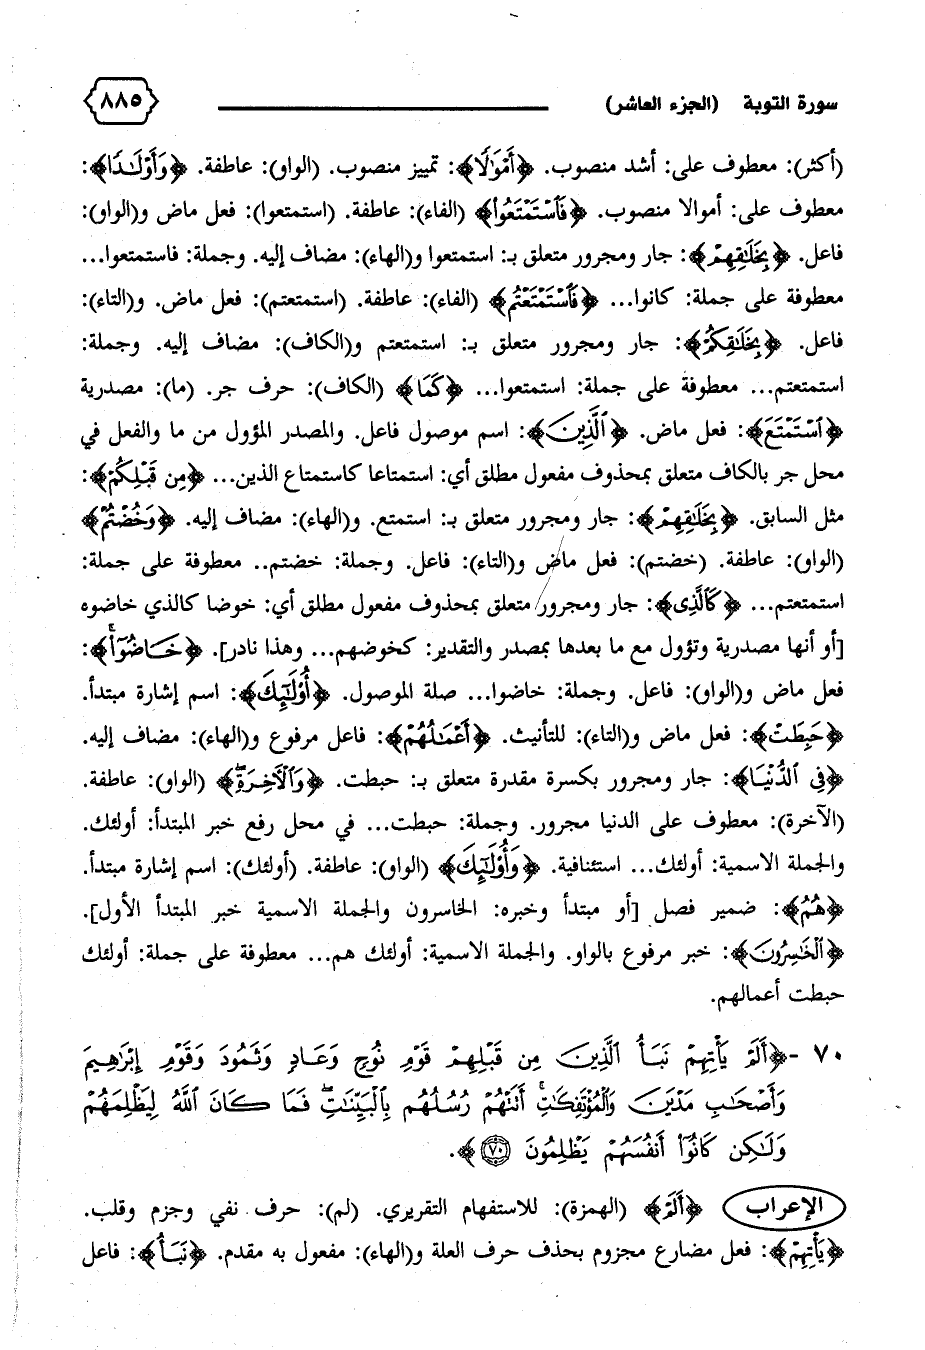 سورة التوبة (الجزء العاشر) ٨٨٥
(أكثر): معطوف على: أشد منصوب. ﴿أَمْوَٰلًا﴾: تمييز منصوب. (الواو): عاطفة. ﴿وَأَوْلَـٰدًا﴾:
معطوف على: أموالا منصوب. ﴿فَٱسْتَمْتَعُوا۟﴾ (الفاء): عاطفة. (استمتعوا): فعل ماض و(الواو):
فاعل. ﴿بِخَلَـٰقِهِمْ﴾: جار ومجرور متعلق بـ: استمتعوا و(الهاء): مضاف إليه. وجملة: فاستمتعوا...
معطوفة على جملة: كانوا... ﴿فَٱسْتَمْتَعْتُم﴾ (الفاء): عاطفة. (استمتعتم): فعل ماض. و(التاء):
فاعل. ﴿بِخَلَـٰقِكُمْ﴾: جار ومجرور متعلق بـ: استمتعتم و(الكاف): مضاف إليه. وجملة:
استمتعتم... معطوفة على جملة: استمتعوا... ﴿كَمَا﴾ (الكاف): حرف جر. (ما): مصدرية
﴿ٱسْتَمْتَعَ﴾: فعل ماض. ﴿ٱلَّذِينَ﴾: اسم موصول فاعل. والمصدر المؤول من ما والفعل في
محل جر بالكاف متعلق بمحذوف مفعول مطلق أي: استمتاعا كاستمتاع الذين... ﴿مِن قَبْلِكُمْ﴾:
مثل السابق. ﴿بِخَلَـٰقِهِمْ﴾: جار ومجرور متعلق بـ: استمتع. و(الهاء): مضاف إليه. ﴿وَخُضْتُمْ﴾
(الواو): عاطفة. (خضتم): فعل ماض و(التاء): فاعل. وجملة: خضتم.. معطوفة على جملة:
استمتعتم... ﴿كَٱلَّذِى﴾: جار ومجرور متعلق بمحذوف مفعول مطلق أي: خوضا كالذي خاضوه
[أو أنها مصدرية وتؤول مع ما بعدها بمصدر والتقدير: كخوضهم... وهذا نادر]. ﴿خَاضُوٓا۟ۚ﴾:
فعل ماض و(الواو): فاعل. وجملة: خاضوا... صلة الموصول. ﴿أُو۟لَـٰٓئِكَ﴾: اسم إشارة مبتدأ.
﴿حَبِطَتْ﴾: فعل ماض و(التاء): للتأنيث. ﴿أَعْمَـٰلُهُمْ﴾: فاعل مرفوع و(الهاء): مضاف إليه.
﴿فِى ٱلدُّنْيَا﴾: جار ومجرور بكسرة مقدرة متعلق بـ: حبطت. ﴿وَٱلْـَٔاخِرَةِۖ﴾ (الواو): عاطفة.
(الآخرة): معطوف على الدنيا مجرور. وجملة: حبطت... في محل رفع خبر المبتدأ: أولئك.
والجملة الاسمية: أولئك... استئنافية. ﴿وَأُو۟لَـٰٓئِكَ﴾ (الواو): عاطفة. (أولئك): اسم إشارة مبتدأ.
﴿هُمُ﴾: ضمير فصل [أو مبتدأ وخبره: الخاسرون والجملة الاسمية خبر المبتدأ الأول].
﴿ٱلْخَـٰسِرُونَ﴾: خبر مرفوع بالواو. والجملة الاسمية: أولئك هم... معطوفة على جملة: أولئك
حبطت أعمالهم.
٧٠ - ﴿أَلَمْ يَأْتِهِمْ نَبَأُ ٱلَّذِينَ مِن قَبْلِهِمْ قَوْمِ نُوحٍ وَعَادٍ وَثَمُودَ وَقَوْمِ إِبْرَٰهِيمَ
وَأَصْحَـٰبِ مَدْيَنَ وَٱلْمُؤْتَفِكَـٰتِۚ أَتَتْهُمْ رُسُلُهُم بِٱلْبَيِّنَـٰتِۖ فَمَا كَانَ ٱللَّهُ لِيَظْلِمَهُمْ
وَلَـٰكِن كَانُوٓا۟ أَنفُسَهُمْ يَظْلِمُونَ ٧٠﴾.
الإعراب ﴿أَلَمْ﴾ (الهمزة): للاستفهام التقريري. (لم): حرف نفي وجزم وقلب.
﴿يَأْتِهِمْ﴾: فعل مضارع مجزوم بحذف حرف العلة و(الهاء): مفعول به مقدم. ﴿نَبَأُ﴾: فاعل